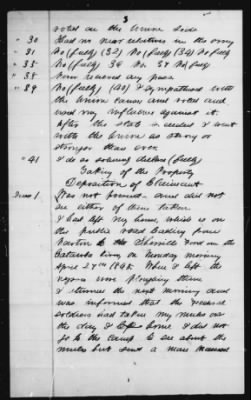 3
voted on the Union side
" 30 Has no near relatives in the army
" 31 No (fully) (32) No (fully) (34) No fully
" 35 No (fully) 36 No. 37 No fully
" 38 Never received any pass
" 39 No (fully) (40) I sympathized with
the Union cause and voted and
used my influence against it.
After the state seceded I went
with the Union as strong or
stronger than ever
" 41 I do so solemnly declare (fully)
Taking of the Property
Deposition of Claimant
Item 1. Was not present and did not
see either of them taken
I had left my home, which is on
the public road leading from
to the Ford on the
Catawba River, on Monday morning
April 27th 1865. When I left the
negroes were ploughing there
I returned the next morning and
was informed that the Federal
soldiers had taken my mules on
the day I left home I did not
go to the camp to see about the
mules but sent a man named